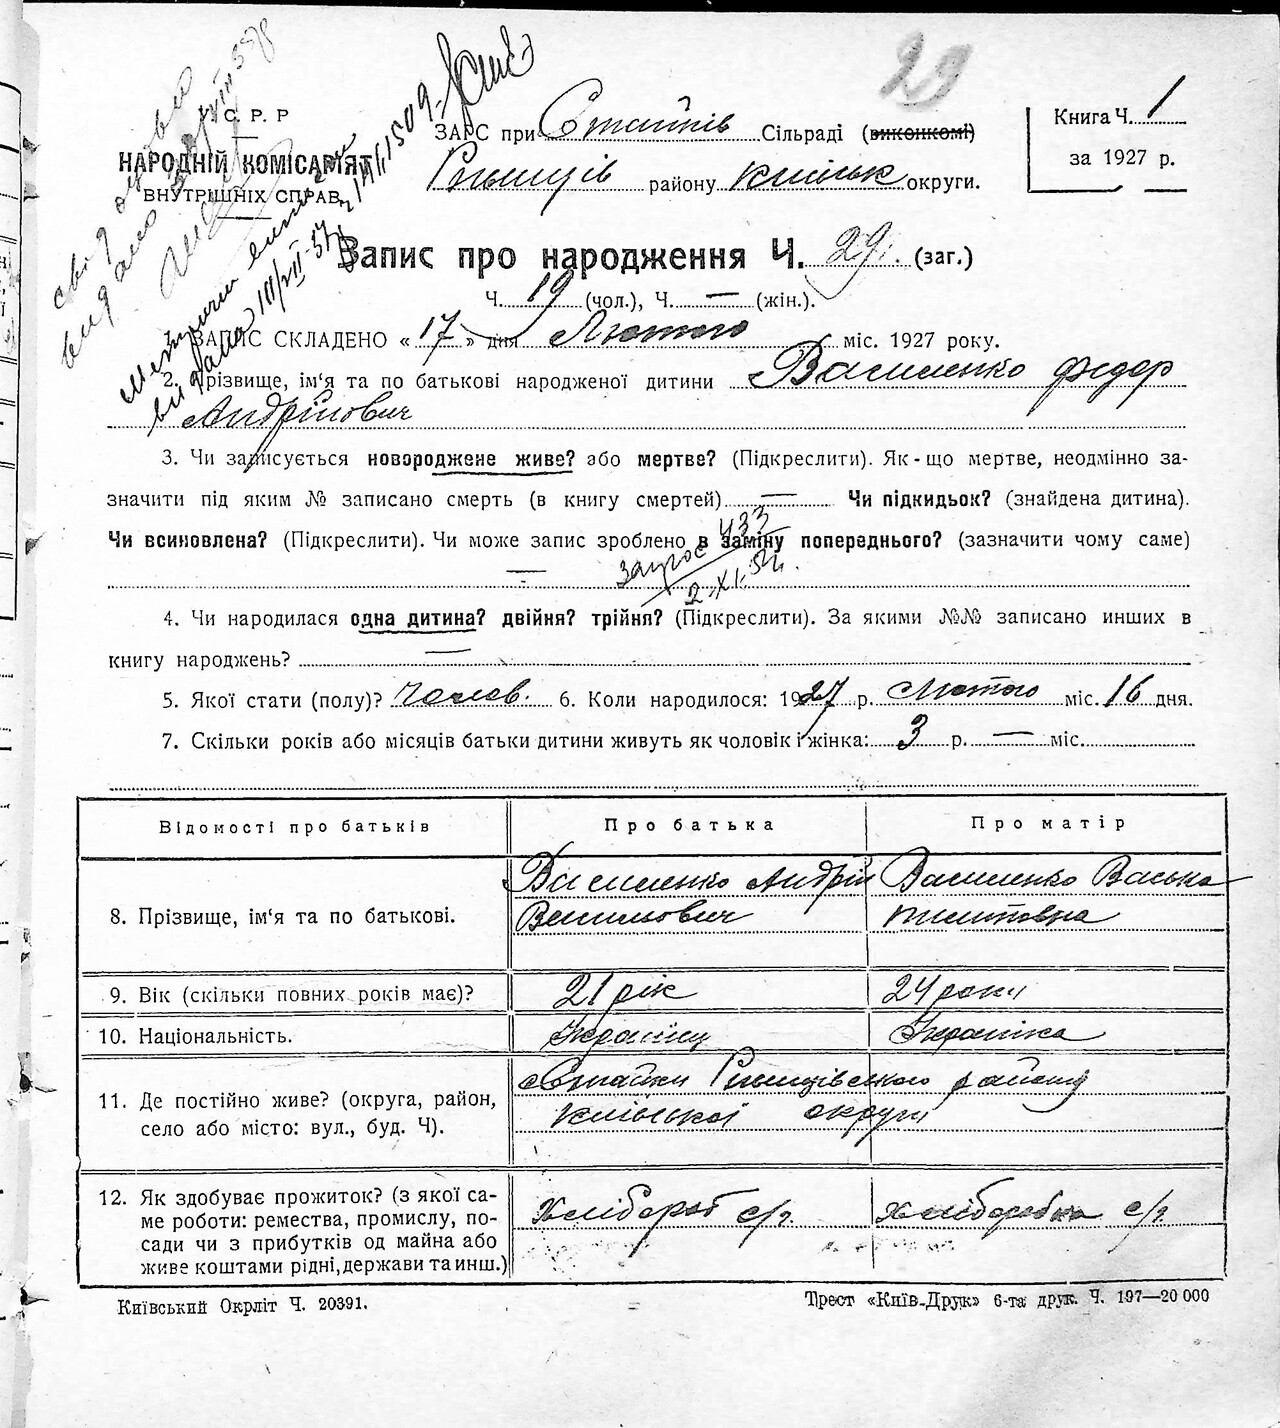 29
У. С. Р. Р
НАРОДНІЙ КОМІСАРІЯТ
ВНУТРІШНІХ СПРАВ
ЗАГС при Стайків Сільраді (виконкомі)
району Київськ округи.
Книга Ч. 1
за 1927 р.
Запис про народження Ч. 29. (заг.)
Ч. 19 (чол.), Ч. — (жін.).
1. ЗАПИС СКЛАДЕНО « 17 » дня Лютого міс. 1927 року.
2. Прізвище, ім'я та по батькові народженої дитини Василенко Федор
Андрійович
3. Чи записується новороджене живе? або мертве? (Підкреслити). Як-що мертве, неодмінно за-
значити під яким № записано смерть (в книгу смертей) — Чи підкидьок? (знайдена дитина).
Чи всиновлена? (Підкреслити). Чи може запис зроблено в заміну попереднього? (зазначити чому саме)
—
4. Чи народилася одна дитина? двійня? трійня? (Підкреслити). За якими №№ записано инших в
книгу народжень? —
5. Якої стати (полу)? чолов. 6. Коли народилося: 1927 р. Лютого міс. 16 дня.
7. Скільки років або місяців батьки дитини живуть як чоловік і жінка: 3 р. — міс.
Відомості про батьків
Про батька
Про матір
8. Прізвище, ім'я та по батькові.
Василенко Андрій
Васильович
Василенко Васька
Титовна
9. Вік (скільки повних років має)?
21 рік
24 роки
10. Національність.
Українец
Українка
11. Де постійно живе? (округа, район,
село або місто: вул., буд. Ч).
с Стайки Ржищівського району
Київської округи
12. Як здобуває прожиток? (з якої са-
ме роботи: ремества, промислу, по-
сади чи з прибутків од майна або
живе коштами рідні, держави та инш.)
Хлібороб с/г.
Хлібороб с/г.
Київський Окрліт Ч. 20391.
Трест «Київ-Друк» 6-та друк. Ч. 197—20 000